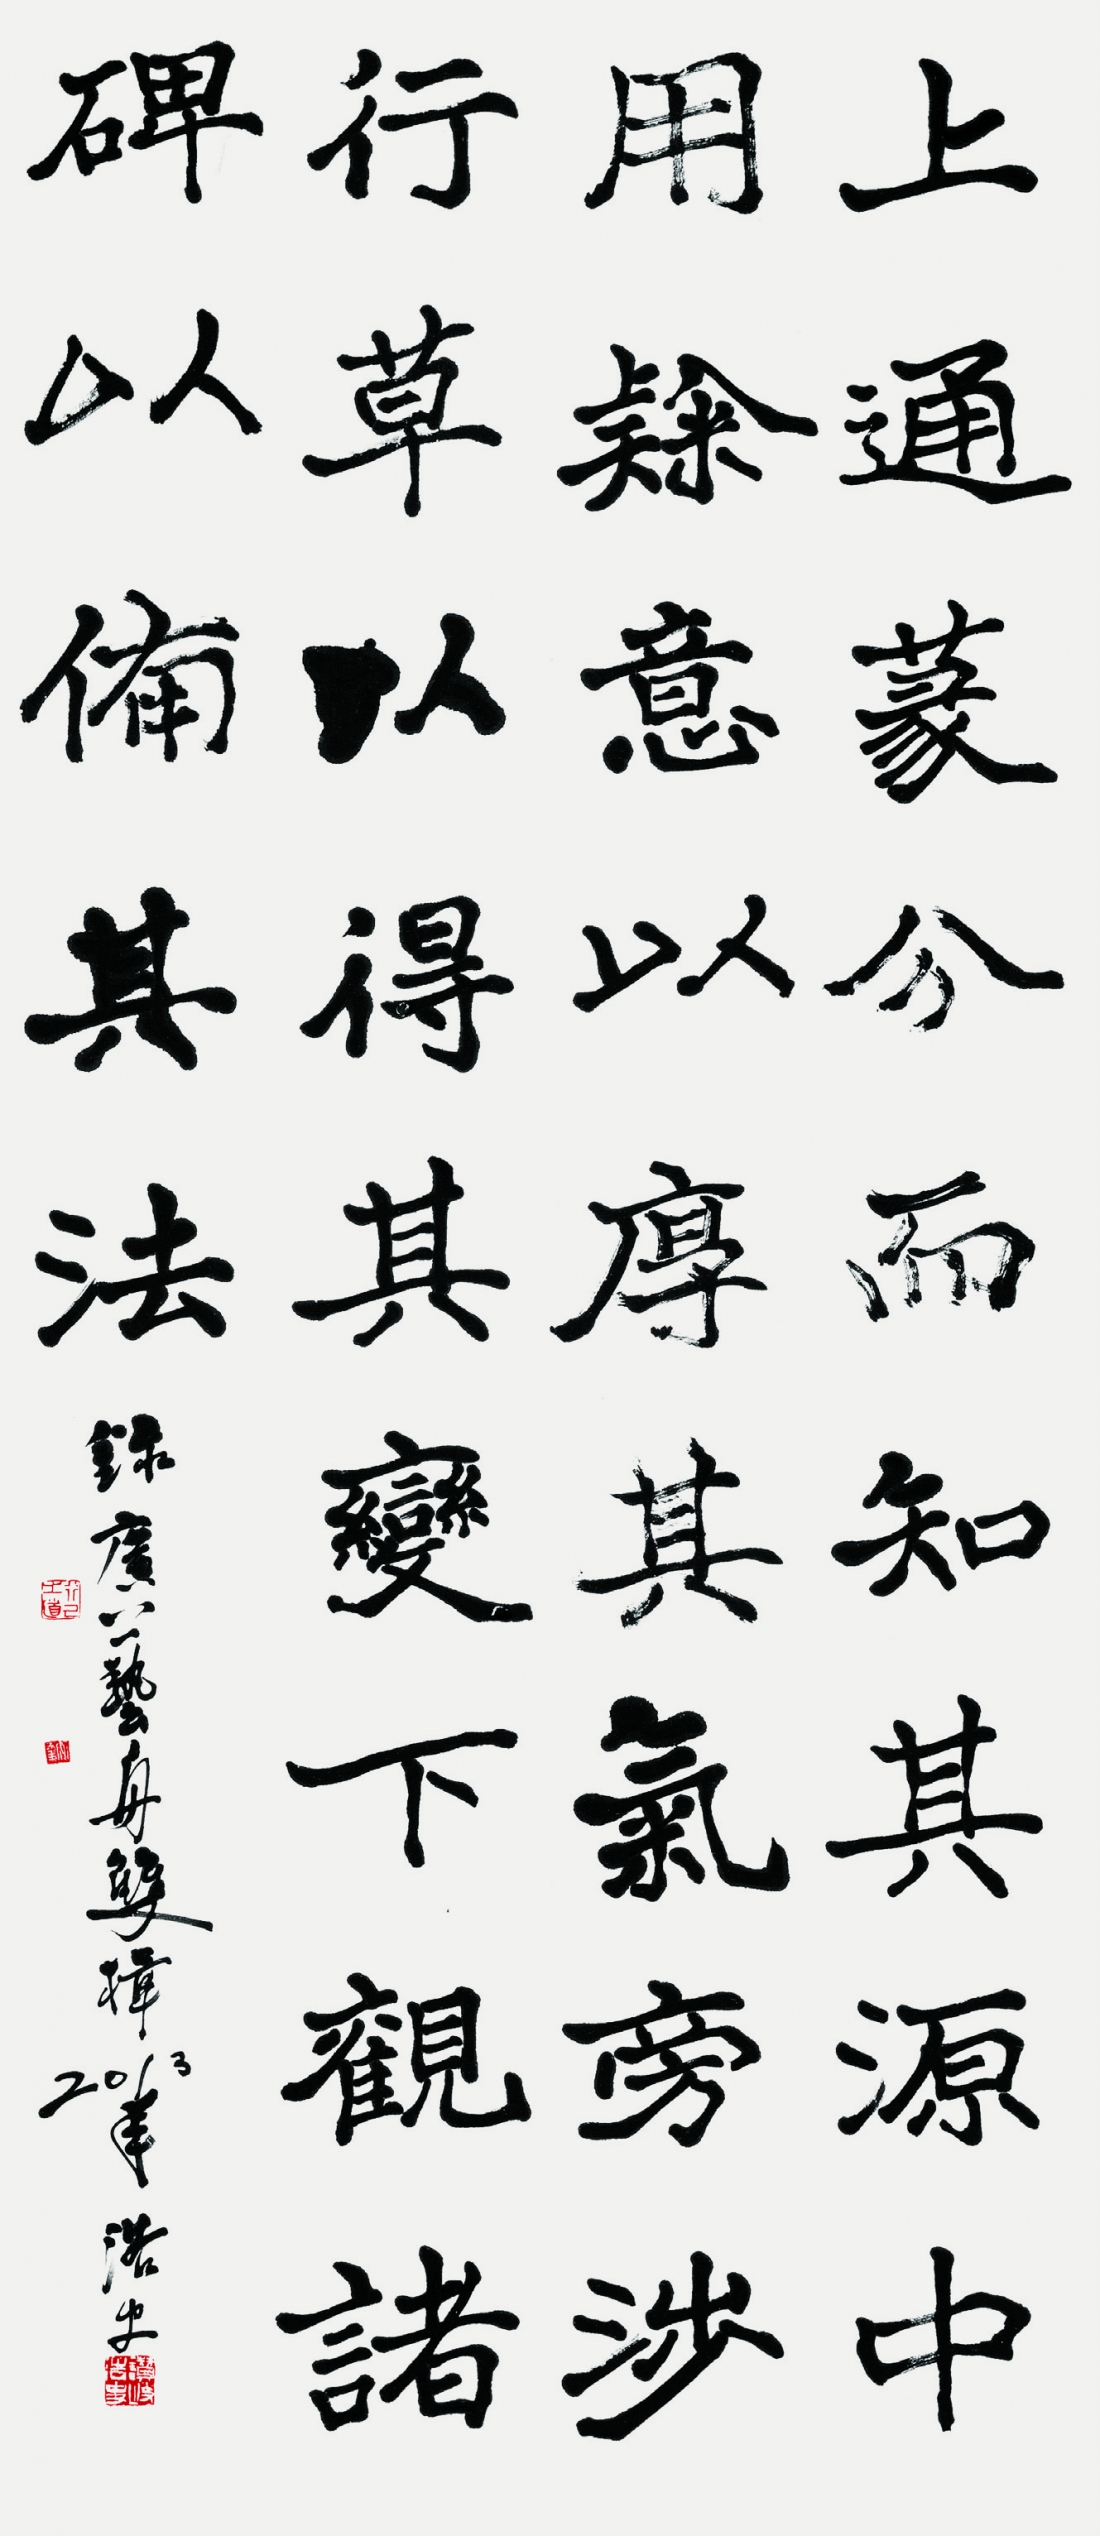 上通篆分而知其源中
用隸意以厚其氣旁涉
行草以得其變下觀諸
碑以備其法
錄廣八藝舟雙楫2013年浩史